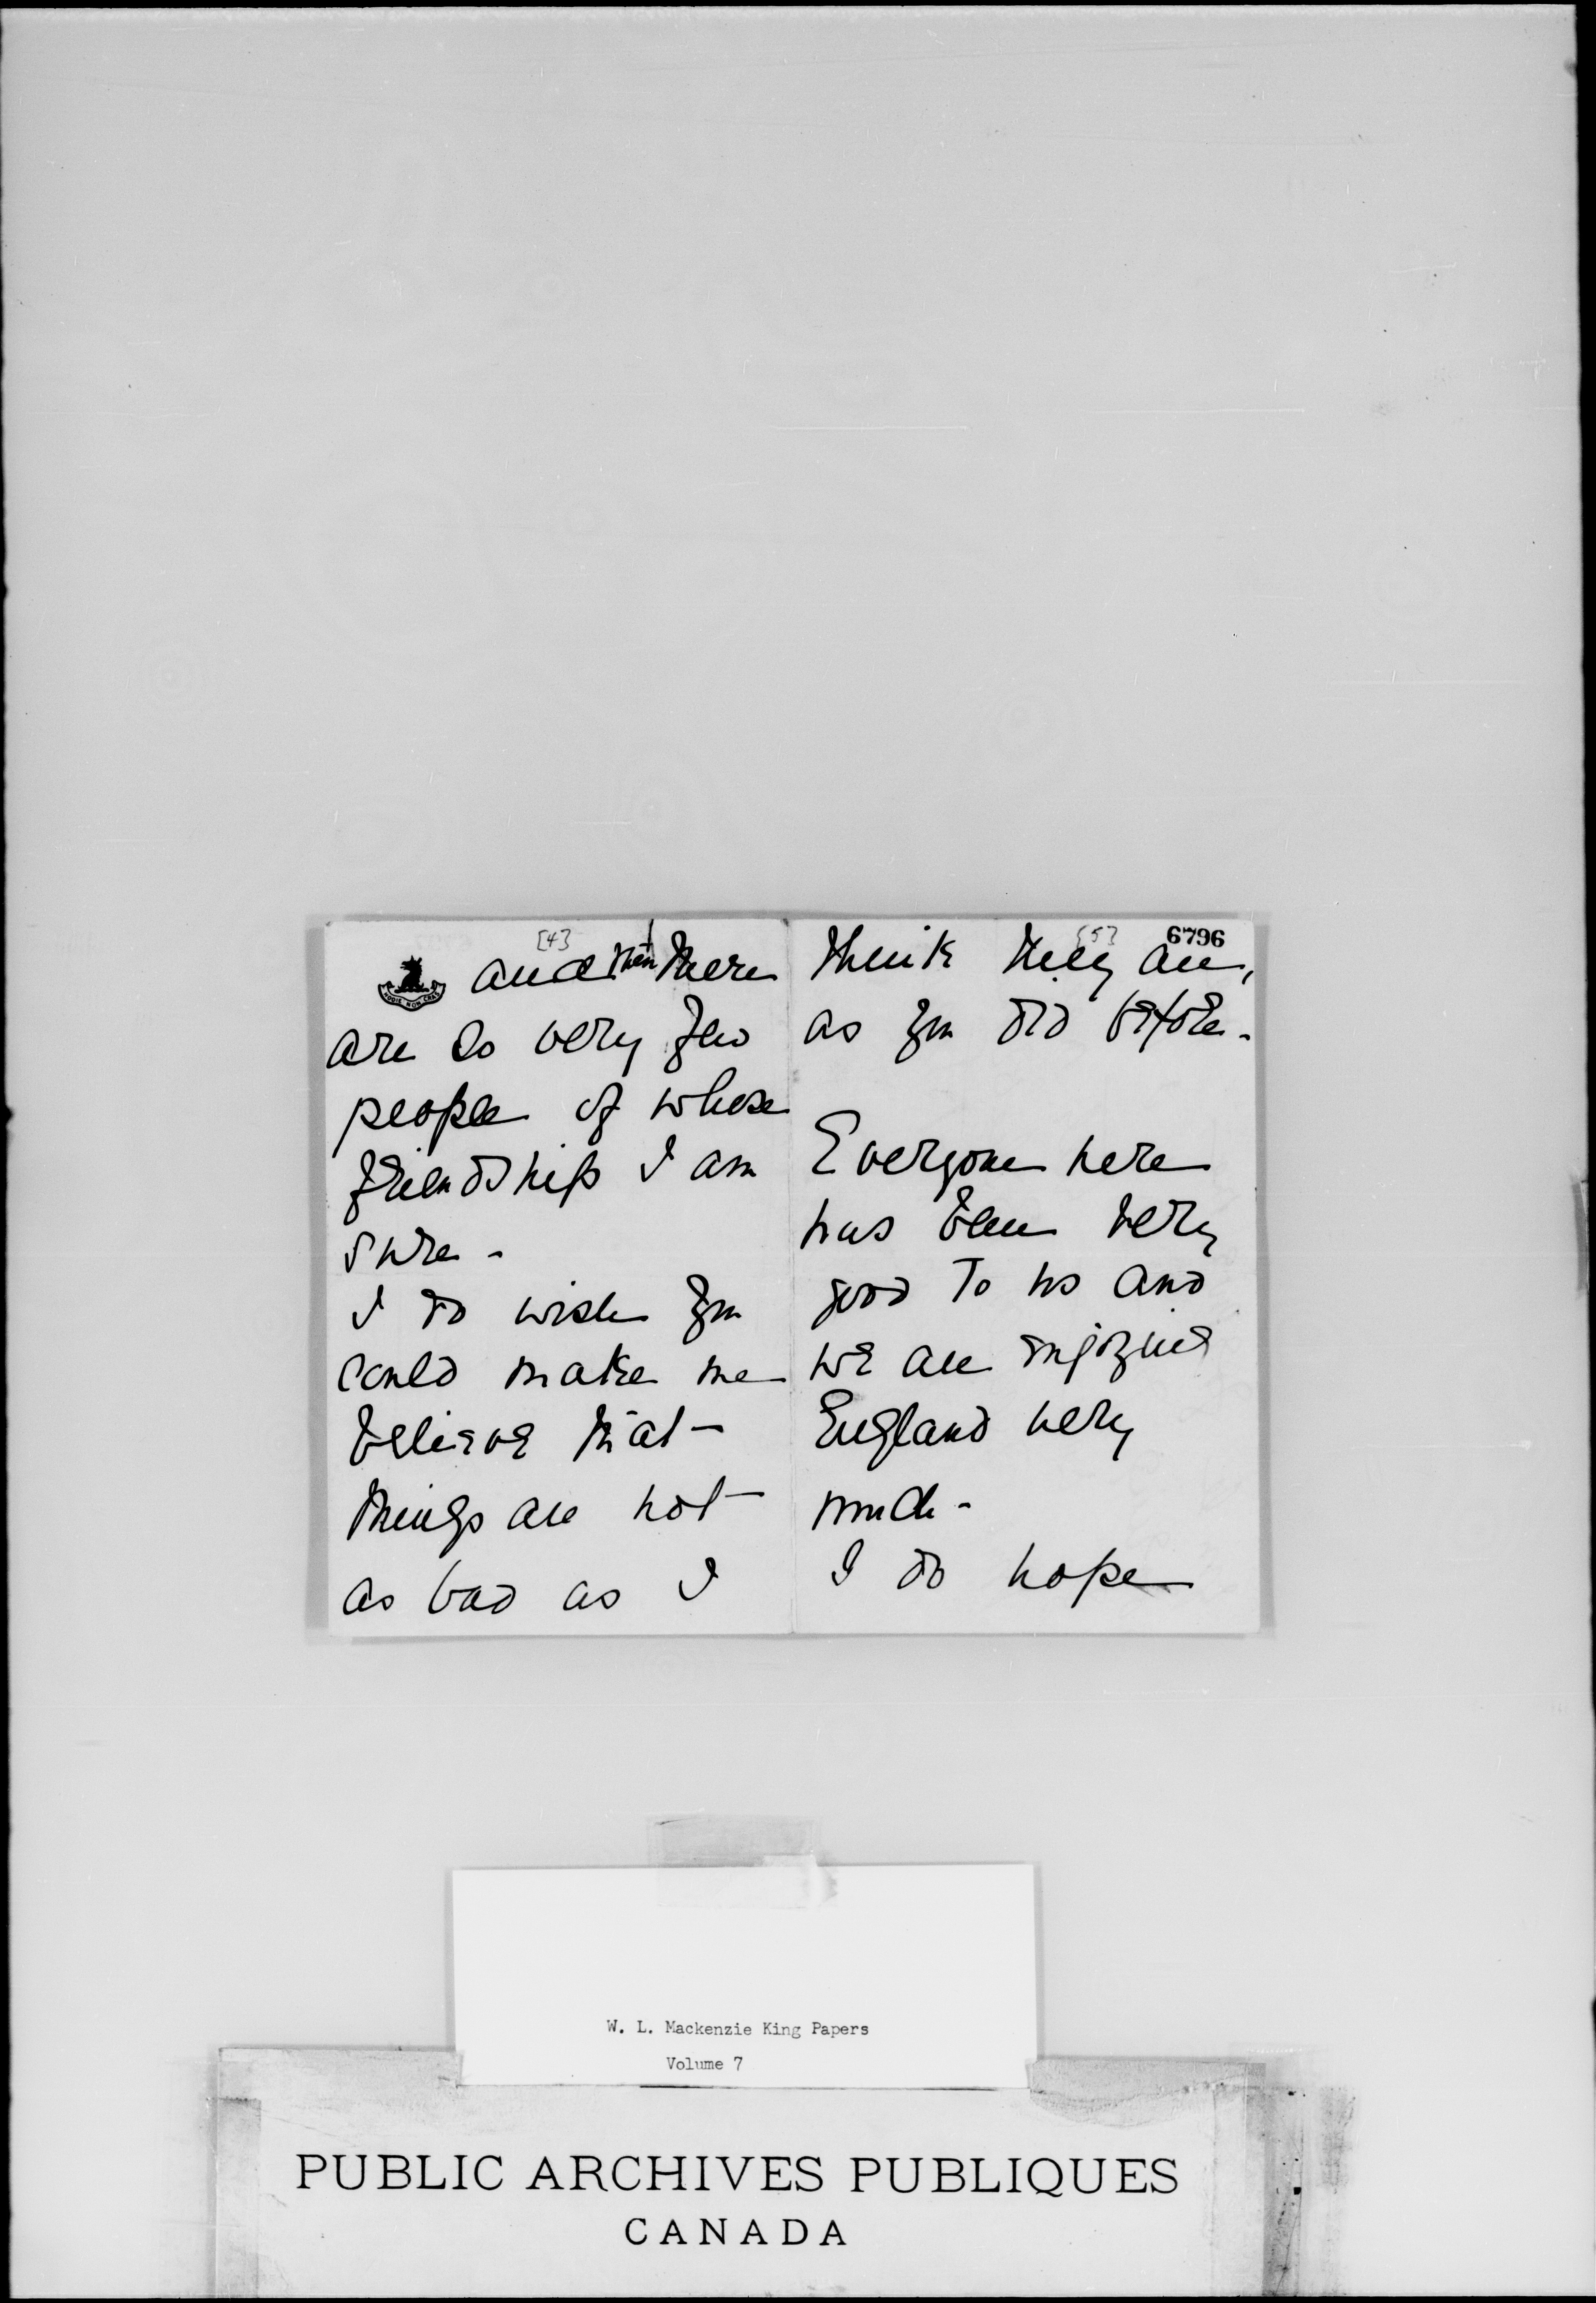 [4]
and then there
are so very few
people of whose
friendship I am
sure -
I do wish you
could make me
believe that -
things are not
as bad as I
[5] 6796
think they are,
as you did before -
Everyone here
has been very
good to us and
we are enjoying
England very
much -
I do hope
W. L. Mackenzie King Papers
Volume 7
PUBLIC ARCHIVES PUBLIQUES
CANADA